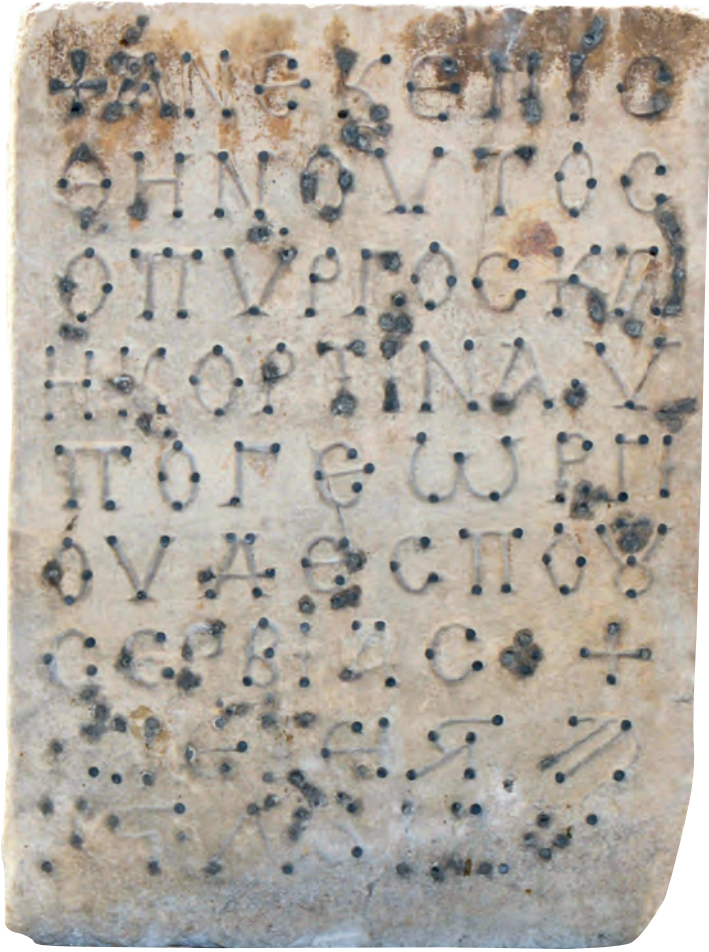 + ΑΝΕΚΕΝΙC
ΘΗΝ ΟVΤΟC
Ο ΠVΡΓΟC ΚΑΙ
Η ΚΟΡΤΙΝΑ · V
ΠΟ ΓΕωΡΓΙ
ΟV ΔΕCΠΟȣ
CΕΡΒΙΑC +